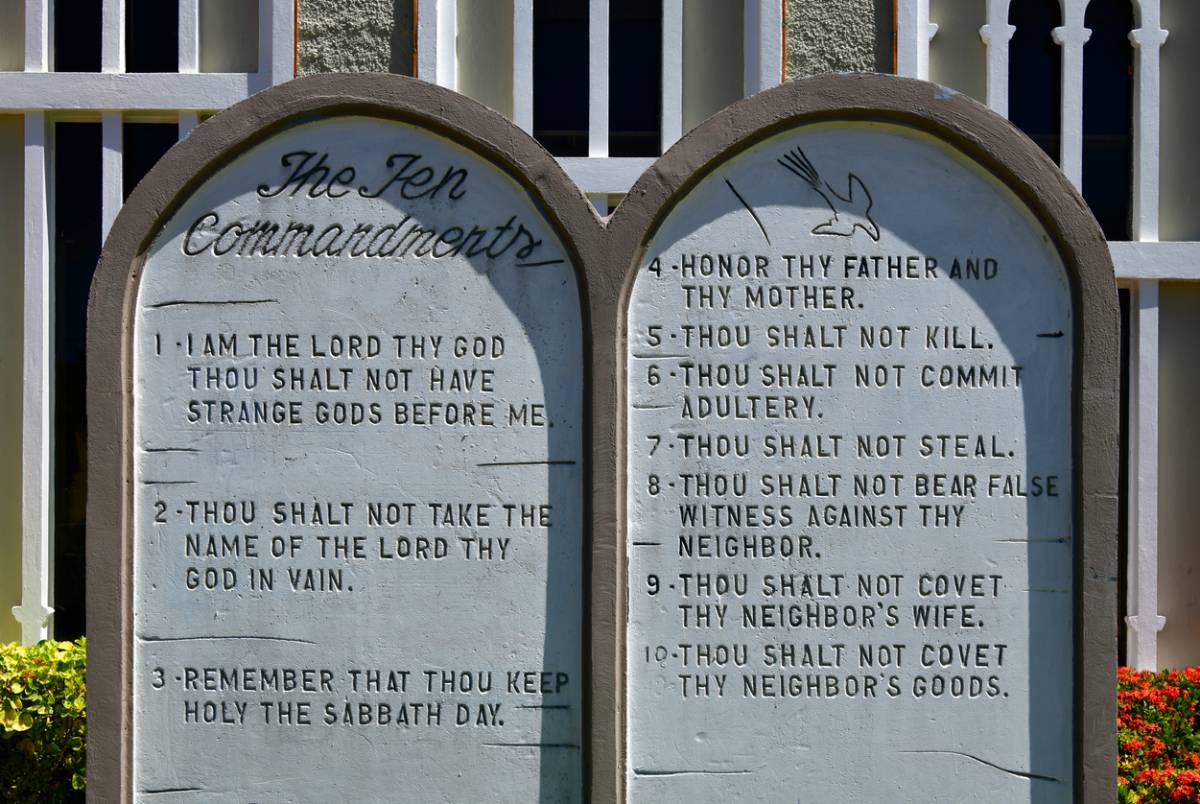 The Ten
Commandments
1 - I AM THE LORD THY GOD
THOU SHALT NOT HAVE
STRANGE GODS BEFORE ME.
2 - THOU SHALT NOT TAKE THE
NAME OF THE LORD THY
GOD IN VAIN.
3 - REMEMBER THAT THOU KEEP
HOLY THE SABBATH DAY.
4 - HONOR THY FATHER AND
THY MOTHER.
5 - THOU SHALT NOT KILL.
6 - THOU SHALT NOT COMMIT
ADULTERY.
7 - THOU SHALT NOT STEAL.
8 - THOU SHALT NOT BEAR FALSE
WITNESS AGAINST THY
NEIGHBOR.
9 - THOU SHALT NOT COVET
THY NEIGHBOR'S WIFE.
10 - THOU SHALT NOT COVET
THY NEIGHBOR'S GOODS.